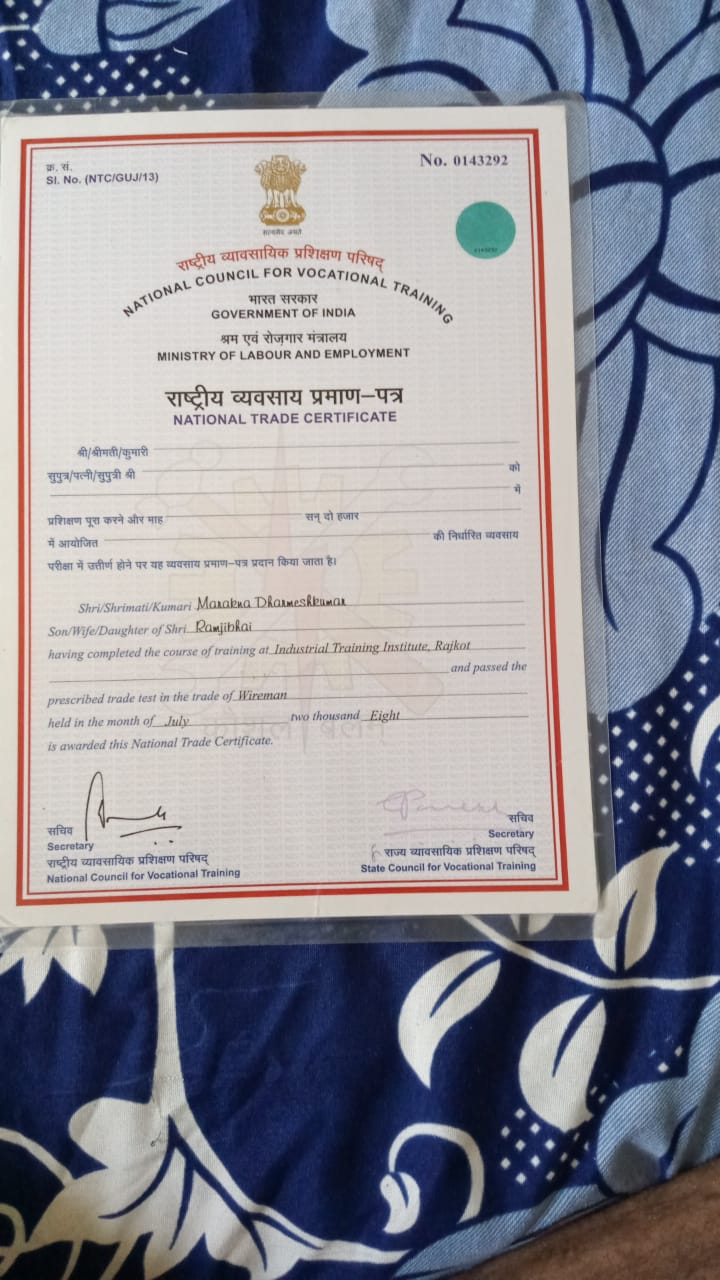 क्र. सं.
Sl. No. (NTC/GUJ/13)
No. 0143292
सत्यमेव जयते
0143292
राष्ट्रीय व्यावसायिक प्रशिक्षण परिषद्
NATIONAL COUNCIL FOR VOCATIONAL TRAINING
भारत सरकार
GOVERNMENT OF INDIA
श्रम एवं रोज़गार मंत्रालय
MINISTRY OF LABOUR AND EMPLOYMENT
राष्ट्रीय व्यवसाय प्रमाण-पत्र
NATIONAL TRADE CERTIFICATE
श्री/श्रीमती/कुमारी
सुपुत्र/पत्नी/सुपुत्री श्री को
में
प्रशिक्षण पूरा करने और माह सन् दो हजार
में आयोजित की निर्धारित व्यवसाय
परीक्षा में उत्तीर्ण होने पर यह व्यवसाय प्रमाण-पत्र प्रदान किया जाता है।
Shri/Shrimati/Kumari Marakna Dharmeshkumar
Son/Wife/Daughter of Shri Ramjibhai
having completed the course of training at Industrial Training Institute, Rajkot
and passed the
prescribed trade test in the trade of Wireman
held in the month of July two thousand Eight
is awarded this National Trade Certificate.
सचिव
Secretary
राष्ट्रीय व्यावसायिक प्रशिक्षण परिषद्
National Council for Vocational Training
सचिव
Secretary
राज्य व्यावसायिक प्रशिक्षण परिषद्
State Council for Vocational Training